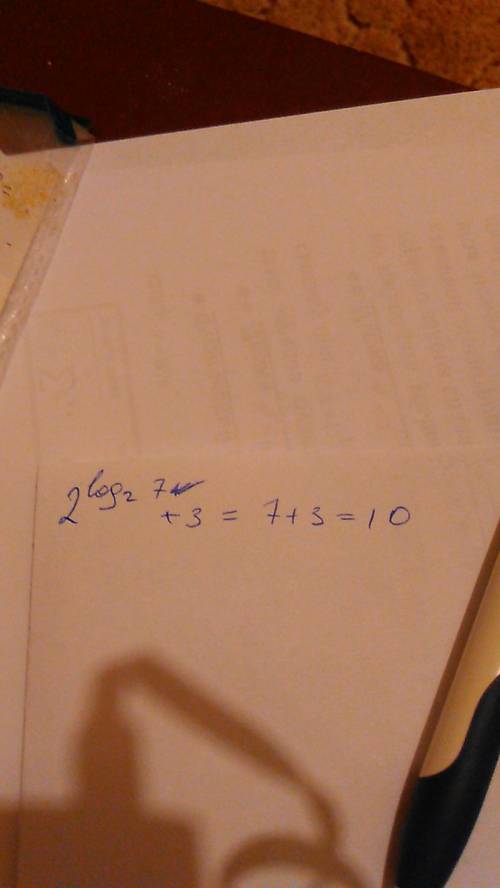 2^{log_2 7} + 3 = 7 + 3 = 10